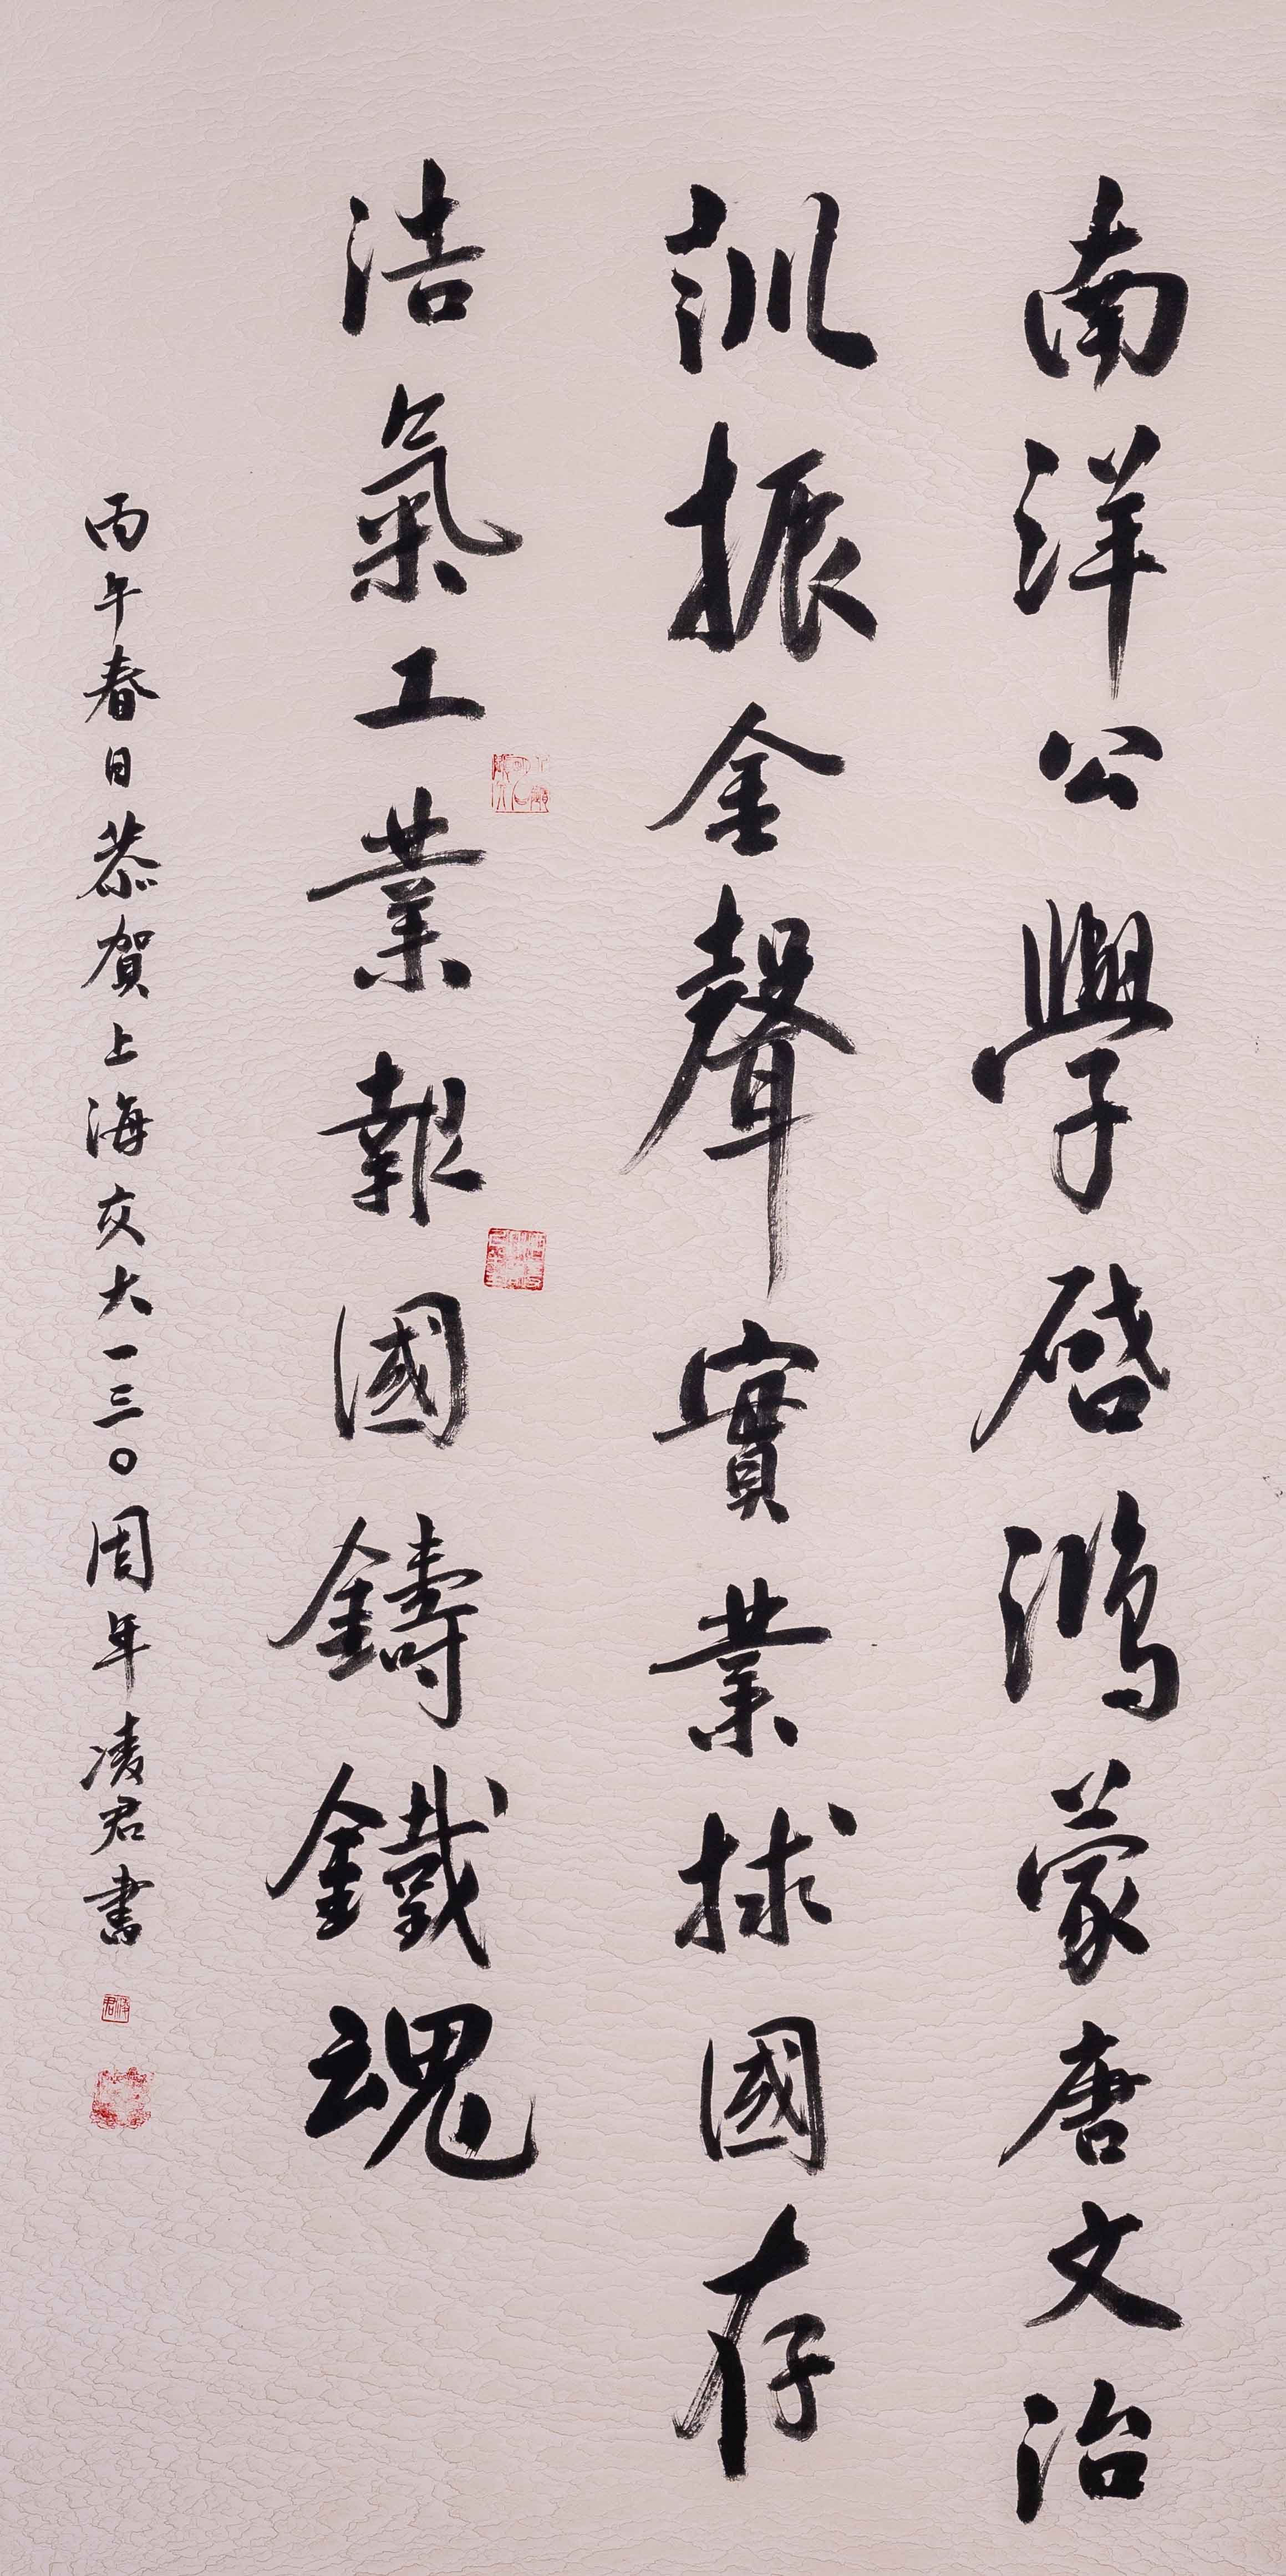 南洋公學啓鴻蒙唐文治
訓振金聲實業捄國存
浩氣工業報國鑄鐵魂
丙午春日恭賀上海交大一三〇周年凌君書
凌君